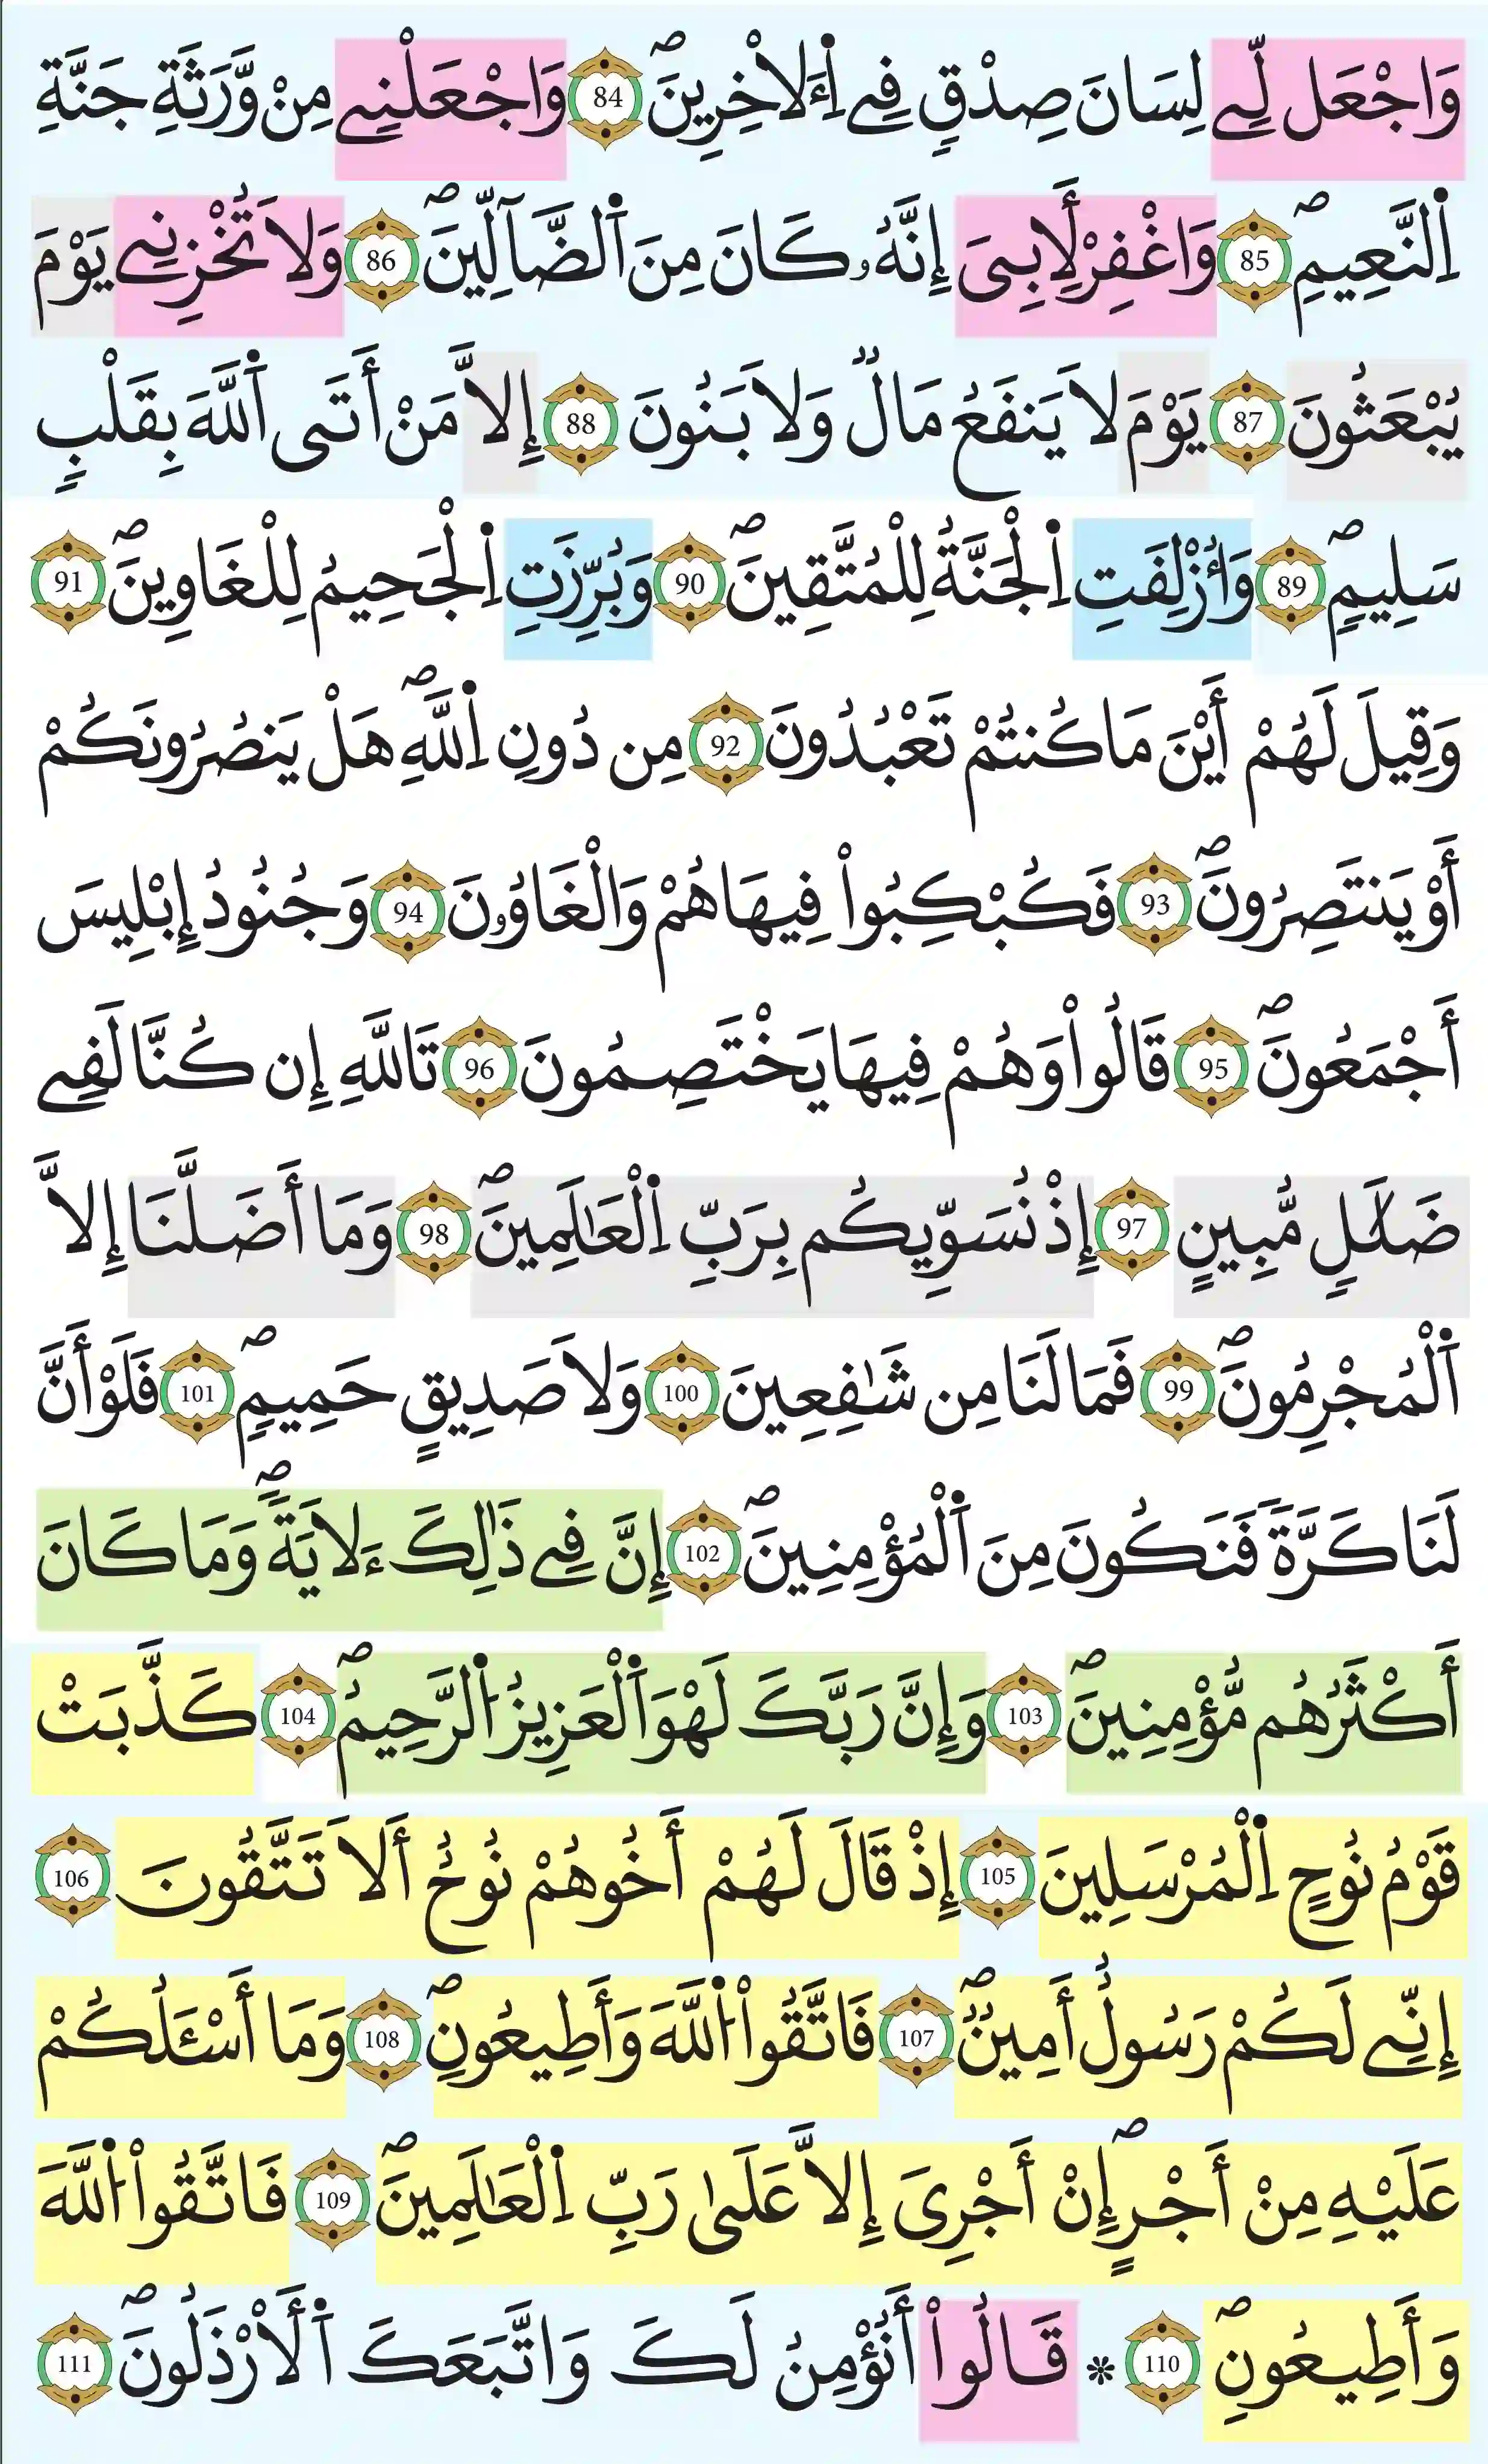 وَاجْعَل لِّے لِسَانَ صِدْقٍ فِے اِ۬لَاخِرِينَۖ 84 وَاجْعَلْنِے مِنْ وَّرَثَةِ جَنَّةِ
اِ۬لنَّعِيمِۖ 85 وَاغْفِرْ لِأَبِىَ إِنَّهُۥ كَانَ مِنَ اَ۬لضَّآلِّينَۖ 86 وَلَا تُخْزِنِے يَوْمَ
يُبْعَثُونَ 87 يَوْمَ لَا يَنفَعُ مَالٌ وَلَا بَنُونَ 88 إِلَّا مَنْ أَتَى اَ۬للَّهَ بِقَلْبٍ
سَلِيمٍۖ 89 وَأُزْلِفَتِ اِ۬لْجَنَّةُ لِلْمُتَّقِينَۖ 90 وَبُرِّزَتِ اِ۬لْجَحِيمُ لِلْغَاوِينَۖ 91
وَقِيلَ لَهُمْ أَيْنَ مَا كُنتُمْ تَعْبُدُونَ 92 مِن دُونِ اِ۬للَّهِۖ هَلْ يَنصُرُونَكُمْ
أَوْ يَنتَصِرُونَۖ 93 فَكُبْكِبُواْ فِيهَا هُمْ وَالْغَاوُۥنَ 94 وَجُنُودُ إِبْلِيسَ
أَجْمَعُونَۖ 95 قَالُواْ وَهُمْ فِيهَا يَخْتَصِمُونَ 96 تَاللَّهِ إِن كُنَّا لَفِے
ضَلَٰلٍ مُّبِينٍ 97 إِذْ نُسَوِّيكُم بِرَبِّ اِ۬لْعَٰلَمِينَۖ 98 وَمَا أَضَلَّنَا إِلَّا
اَ۬لْمُجْرِمُونَۖ 99 فَمَا لَنَا مِن شَٰفِعِينَ 100 وَلَا صَدِيقٍ حَمِيمٍۖ 101 فَلَوْ أَنَّ
لَنَا كَرَّةً فَنَكُونَ مِنَ اَ۬لْمُؤْمِنِينَۖ 102 إِنَّ فِے ذَٰلِكَ ءَلَايَةًۖ وَمَا كَانَ
أَكْثَرُهُم مُّؤْمِنِينَۖ 103 وَإِنَّ رَبَّكَ لَهْوَ اَ۬لْعَزِيزُ اُ۬لرَّحِيمُۖ 104 كَذَّبَتْ
قَوْمُ نُوحٍ اِ۬لْمُرْسَلِينَ 105 إِذْ قَالَ لَهُمْ أَخُوهُمْ نُوحٌ أَلَا تَتَّقُونَ 106
إِنِّے لَكُمْ رَسُولٌ أَمِينٌۖ 107 فَاتَّقُواْ اُ۬للَّهَ وَأَطِيعُونِۖ 108 وَمَا أَسْـَٔلُكُمْ
عَلَيْهِ مِنْ أَجْرٍۖ إِنْ أَجْرِىَ إِلَّا عَلَىٰ رَبِّ اِ۬لْعَٰلَمِينَۖ 109 فَاتَّقُواْ اُ۬للَّهَ
وَأَطِيعُونِۖ 110 * قَالُواْ أَنُؤْمِنُ لَكَ وَاتَّبَعَكَ اَ۬لَأرْذَلُونَۖ 111